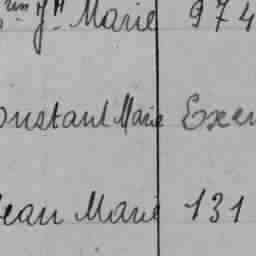 Jh Marie 974
Constant Marie Exem
Jean Marie 131